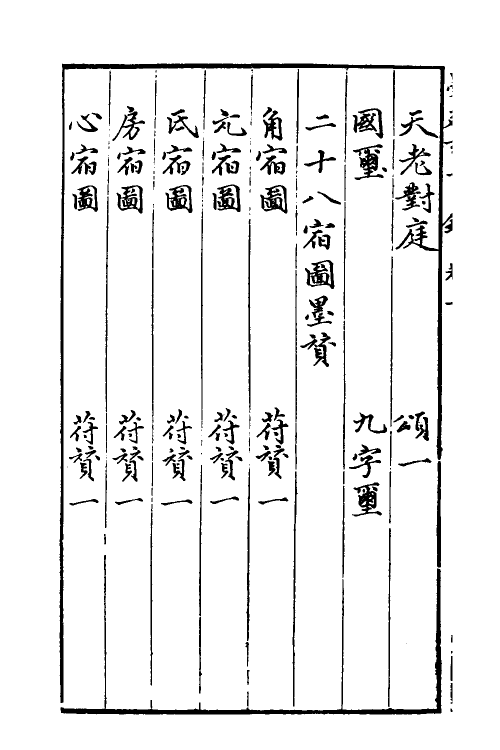 天老對庭 頌一
國璽 九字璽
二十八宿圖墨贊
角宿圖 苻贊一
亢宿圖 苻贊一
氐宿圖 苻贊一
房宿圖 苻贊一
心宿圖 苻贊一